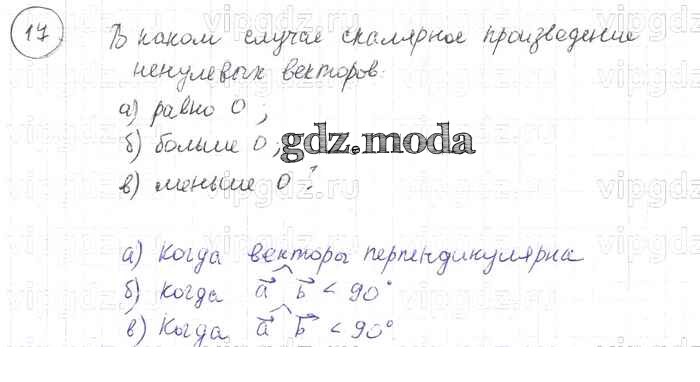 17 В каком случае скалярное произведение
ненулевых векторов:
а) равно 0;
б) больше 0;
gdz.moda
в) меньше 0?
а) Когда векторы перпендикулярна
б) Когда a⃗ ^ b⃗ < 90°
в) Когда a⃗ ^ b⃗ < 90°